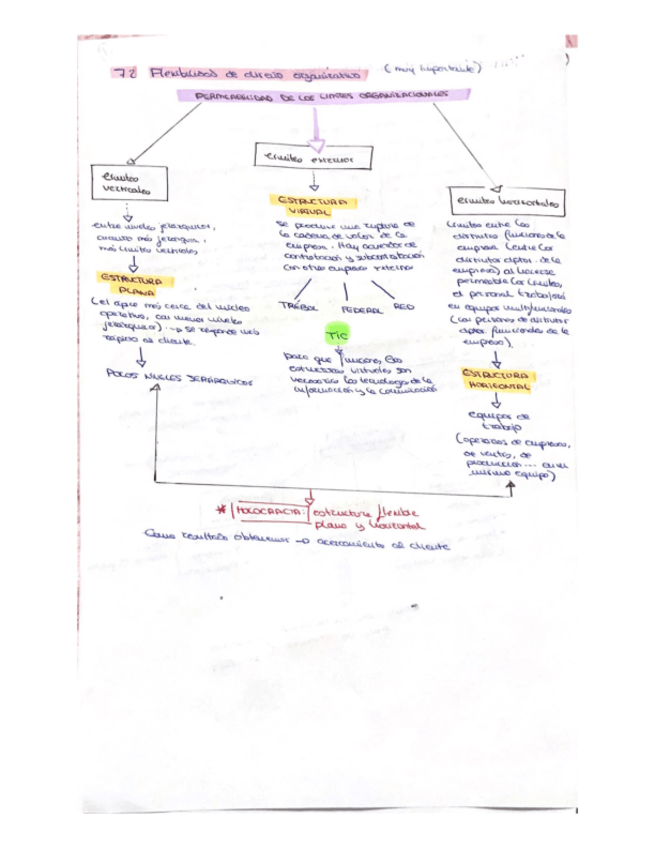 7.2 Flexibilidad de diseño organizativo (muy importante)
PERMEABILIDAD DE LOS LÍMITES ORGANIZACIONALES
Límites
verticales
Límites externos
Límites horizontales
entre niveles jerárquicos,
cuanto más jerarquía,
más límites verticales
ESTRUCTURA
PLANA
(el ápice más cerca del núcleo
operativo, con menos niveles
jerárquicos) → se responde más
rápido al cliente.
POCOS NIVELES JERÁRQUICOS
ESTRUCTURA
VIRTUAL
se produce una ruptura de
la cadena de valor de la
empresa. Hay acuerdos de
contratación y subcontratación
con otras empresas externas
TRÉBOL FEDERAL RED
TIC
para que funcionen, las
estructuras virtuales son
necesarias las tecnologías de la
información y la comunicación
Límites entre las
distintas funciones de la
empresa (entre los
distintos dptos. de la
empresa) al hacerse
permeable los límites,
el personal trabajará
en equipos multifuncionales
(con personas de distintos
dptos. funcionales de la
empresa).
ESTRUCTURA
HORIZONTAL
equipos de
trabajo
(operarios de empresas,
de ventas, de
producción... en el
mismo equipo)
* HOLOCRACIA: estructura flexible
plana y horizontal
Como resultado obtenemos → acercamiento al cliente